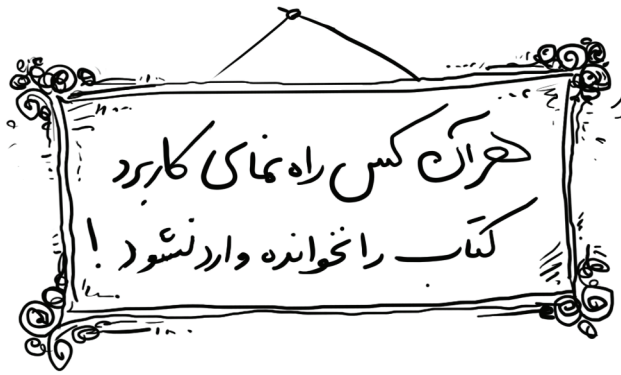 هر آن کس راه نمای کاربرد
کتاب را نخوانده وارد نشود!